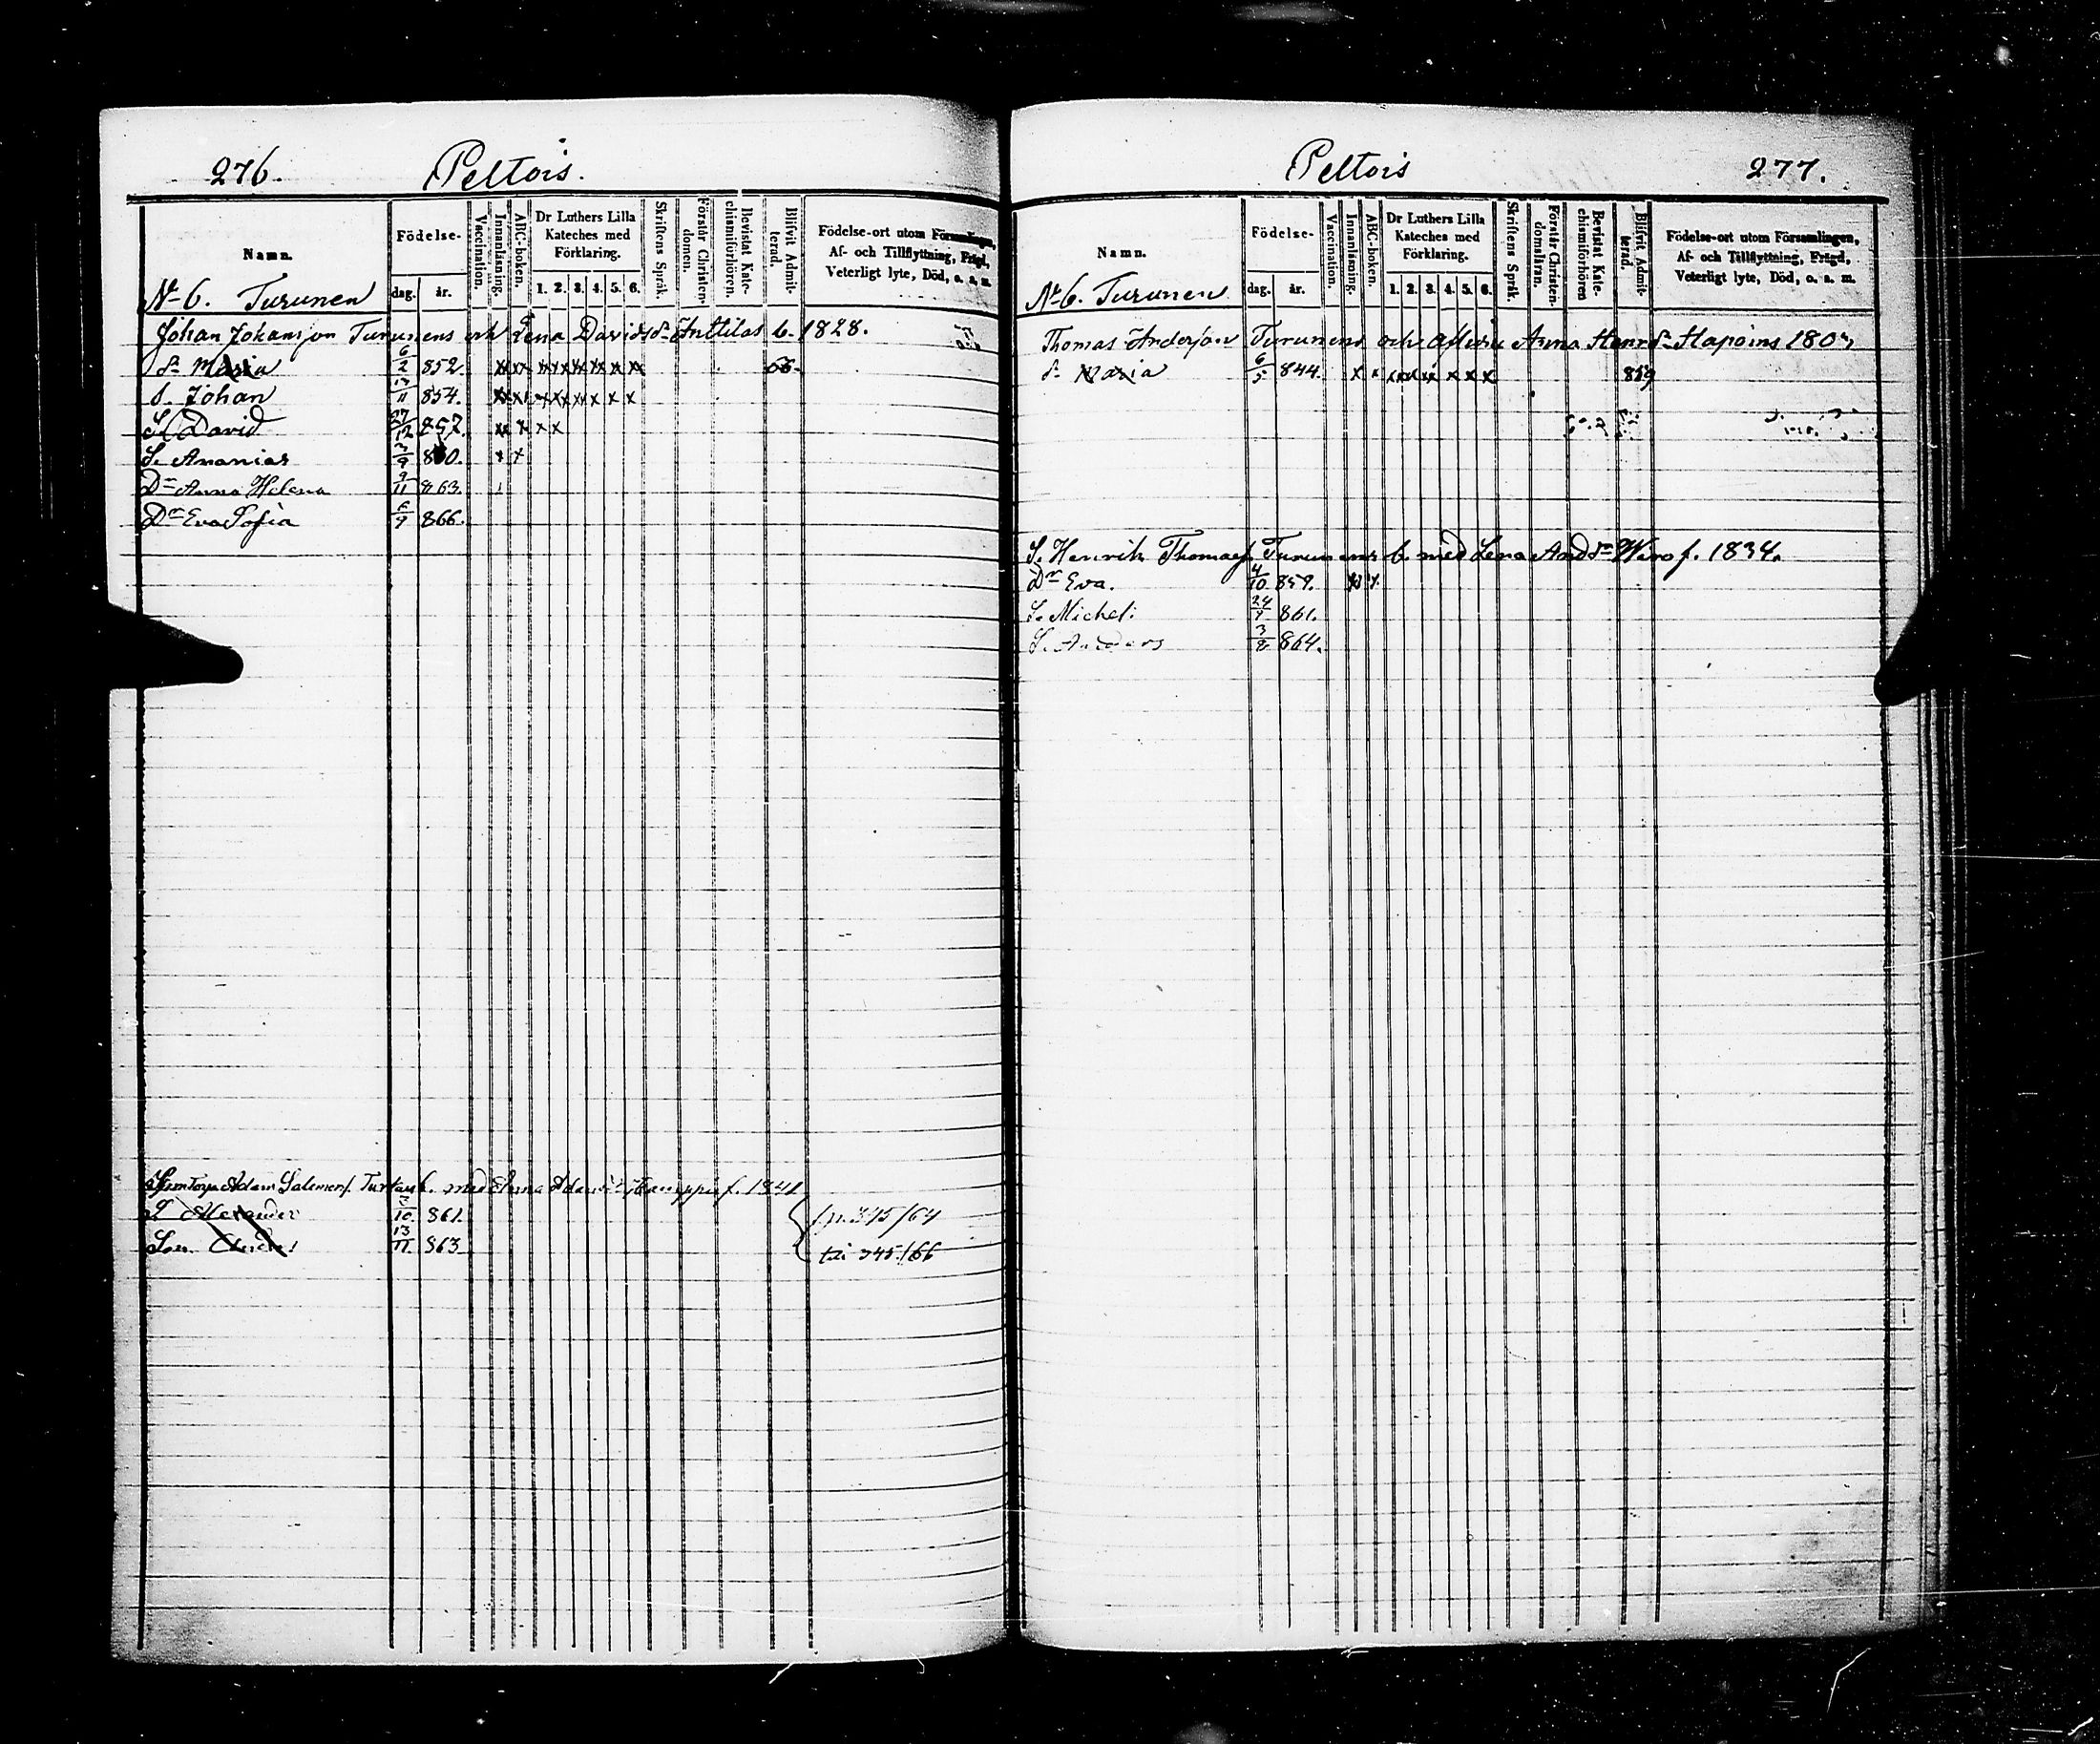 276. Peltois.
Namn. Födelse- dag. år. Vaccination. Innanläsning. ABC-boken. Dr Luthers Lilla Kateches med Förklaring. 1. 2. 3. 4. 5. 6. Skriftens Språk. Förstår Christendomen. Bevistat Katechismiförhören. Blifvit Admitterad. Födelse-ort utom Församlingen, Af- och Tillflyttning, Frägd, Veterligt lyte, Död, o. s. m.
N-6. Turunen
Johan Johansson Turunens och Lena Davidsdr Anttilas b. 1828.
dr Maria 6/2 852. 66.
s. Johan 854.
S. David 27/12 857.
S. Ananias 860.
Dr Anna Helena 9/11 863.
Dr Eva Sofia 6/9 866.
Adam Salomons. b. med Anna f. 1841
S Alexander 3/10 861.
Son 13/11 863
345/64
till 345/66
Peltois 277.
Namn. Födelse- dag. år. Vaccination. Innanläsning. ABC-boken. Dr Luthers Lilla Kateches med Förklaring. 1. 2. 3. 4. 5. 6. Skriftens Språk. Förstår Christendomsläran. Bevistat Katechismiförhören Blifvit Admitterad. Födelse-ort utom Församlingen, Af- och Tillflyttning, Frägd, Veterligt lyte, Död, o. s. m.
N-6. Turunen
Thomas Andersson Turunens och Anna Henrdr Hapoins
dr Maria 6/5 844. 859
S. Henrik Thomas. Turunens b. med Lena Anddr Wiro f. 1834.
Dr Eva. 4/10 859.
S. Michel: 861.
S. Anders 3/8 864.